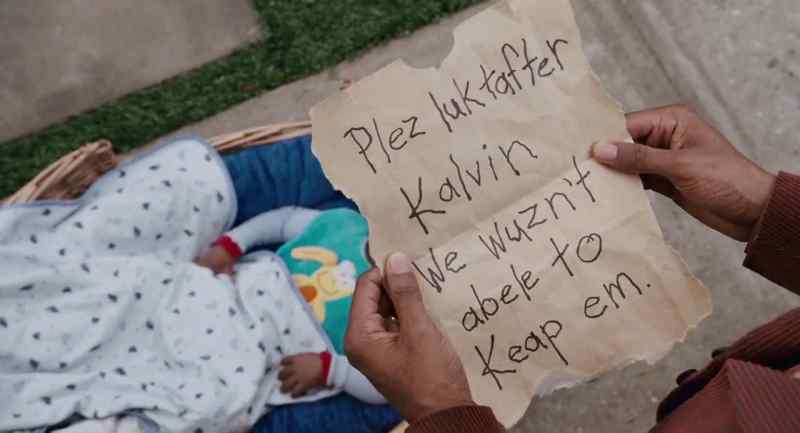 Plez luktafter
Kalvin
We wuzn't
abele to
Keap em.